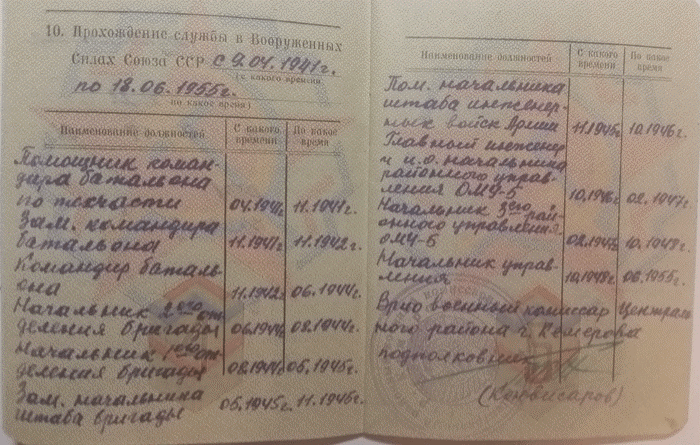 10. Прохождение службы в Вооруженных
Силах Союза ССР с 9.04.1941г.
(с какого времени,
по 18.06.1955г.
по какое время)
Наименование должностей
С какого
времени
По какое
время
Помощник коман-
дира батальона
по техчасти 04.1941г. 11.1941г.
Зам. командира
батальона 11.1941г. 11.1942г.
Командир баталь-
она 11.1942г. 06.1944г.
Начальник 2ого от-
деления бригады 06.1944г. 08.1944г.
Начальник 1ого от-
деления бригады 08.1944г. 05.1945г.
Зам. начальника
штаба бригады 05.1945г. 11.1945г.
Наименование должностей
С какого
времени
По какое
время
Пом. начальника
штаба инженер-
ных войск Армии 11.1945г. 10.1946г.
Главный инженер
и и.о. начальника
районного управ-
ления ОМУ-5 10.1946г. 02.1947г.
Начальник 3его рай-
онного управления
ОМУ-5 02.1947г. 10.1948г.
Начальник управ-
ления 10.1948г. 06.1955г.
Врио военный комиссар Централь-
ного района г. Кемерова
подполковник